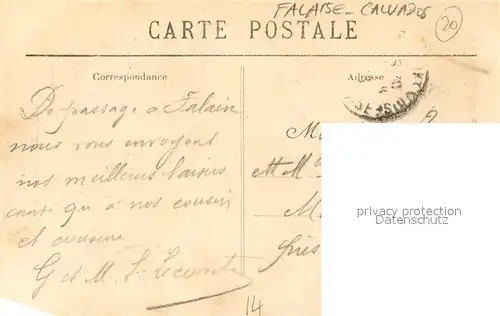 FALAISE - CALVADOS
20
CARTE POSTALE
Correspondance
Adresse
De passage a Falaise
nous vous envoyons
nos meilleurs baisers
qu à nos cousin
et cousine
G et M L Lecomte
M
et M
M
près
privacy protection
14